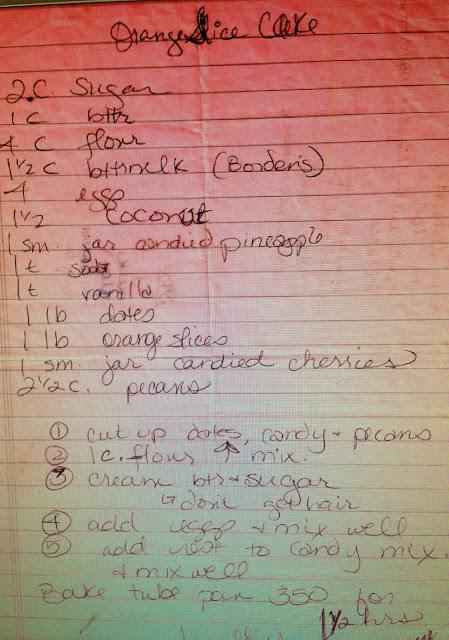 Orange Slice Cake
2 C. Sugar
1 C bttr
4 C flour
1 1/2 C bttrmilk (Borden's)
4 eggs
1 1/2 Coconut
1 sm. jar candied pineapple
1 t soda
1 t vanilla
1 lb dates
1 lb orange slices
1 sm. jar candied cherries
2 1/2 C. pecans
① cut up dates, candy + pecans
② 1 c. flour ↑ mix.
③ cream bttr + sugar
↳ don't get hair
④ add eggs + mix well
⑤ add rest to candy mix.
+ mix well
Bake tube pan 350 for
1 1/2 hrs